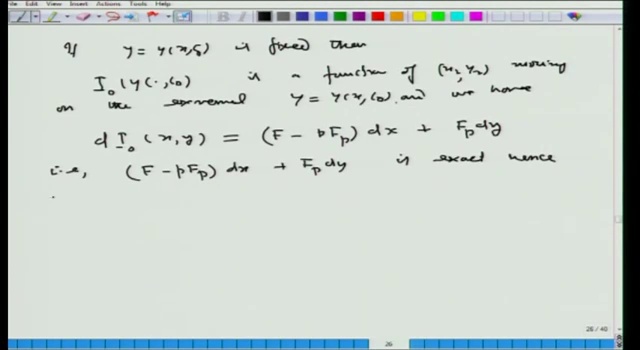 View Insert Actions Tools Help
If y = y(x,c) is fixed then
I₀(y(·,c₀) is a function of (x₂,y₂) moving
on the extremal y = y(x,c₀) and we have
dI₀(x,y) = (F - pFₚ) dx + Fₚdy
i.e, (F - pFₚ) dx + Fₚdy is exact hence
26 / 40
26